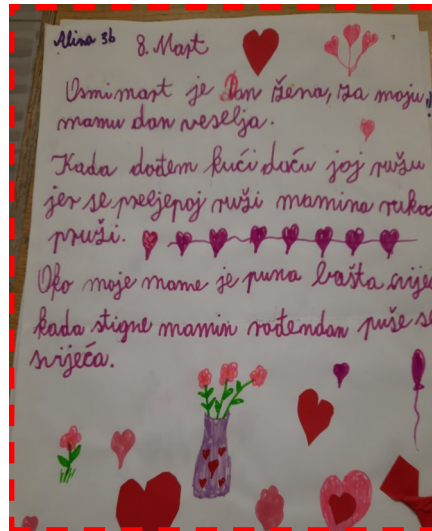 Alina 3b 8. Mart
Osmi mart je Dan žena, za moju
mamu dan veselja.
Kada dođem kući daću joj ružu
jer se preljepoj ruži mamina ruka
pruži.
Oko moje mame je puna bašta cvijeća
kada stigne mamin rođendan puše se
svijeća.